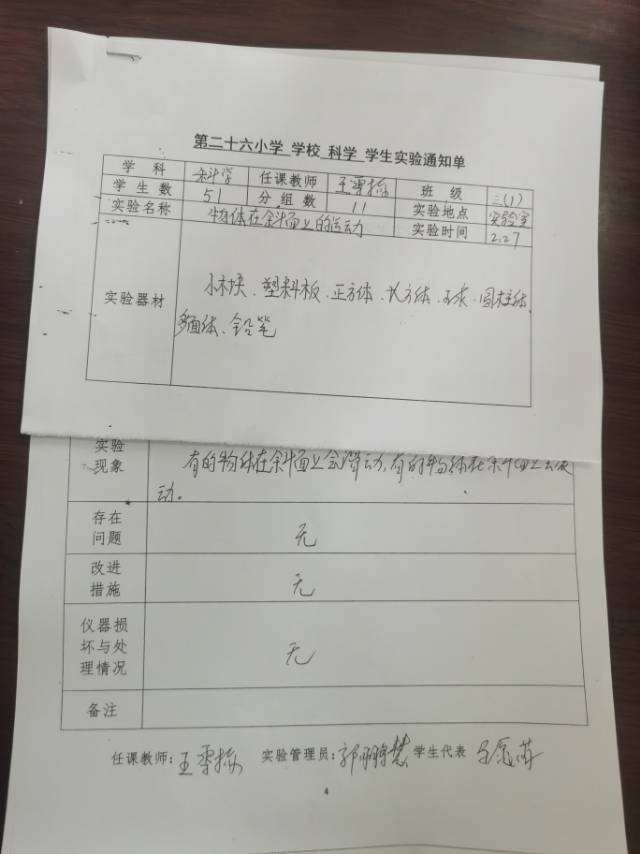 第二十六小学 学校 科学 学生实验通知单
学 科 科学 任课教师 王雪梅 班 级 三(1)
学 生 数 51 分 组 数 11 实验地点 实验室
实验名称 物体在斜面上的运动 实验时间 2.27
实验器材
小木块、塑料板、正方体、长方体、球、圆柱体、
多面体、铅笔
实验
现象
有的物体在斜面上会滑动,有的物体在斜面上会滚
动。
存在
问题
无
改进
措施
无
仪器损
坏与处
理情况
无
备注
任课教师: 王雪梅 实验管理员: 学生代表
4